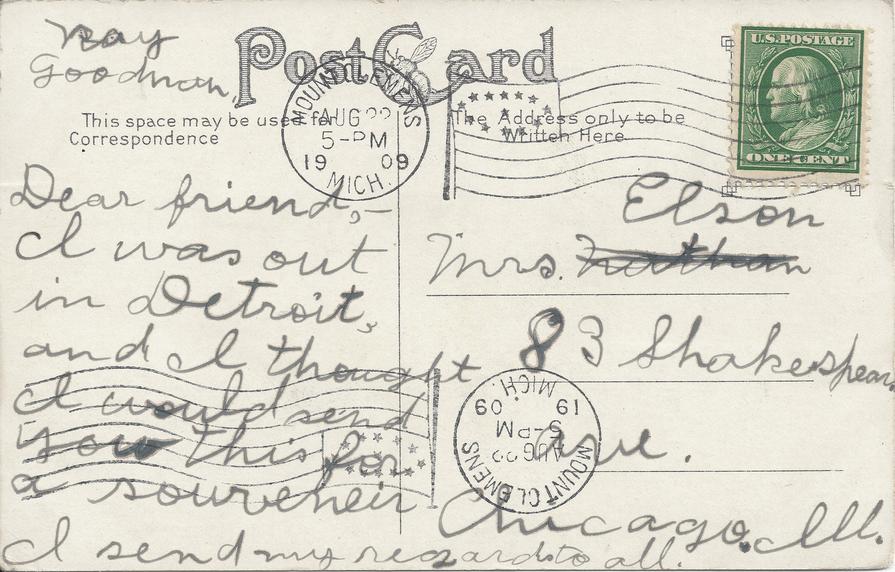 Ray
Goodman,
Post Card
This space may be used for
Correspondence
The Address only to be
Written Here
U.S. POSTAGE
ONE CENT
MOUNT CLEMENS
AUG
5-PM
19 09
MICH.
Dear friend,-
I was out
in Detroit,
and I thought
I would send
you this for
a souveneir
I send my regards to all.
Elson
Mrs. Nathan
83 Shakespear
ave.
Chicago. Ill.
MOUNT CLEMENS
AUG
5-PM
19 09
MICH.